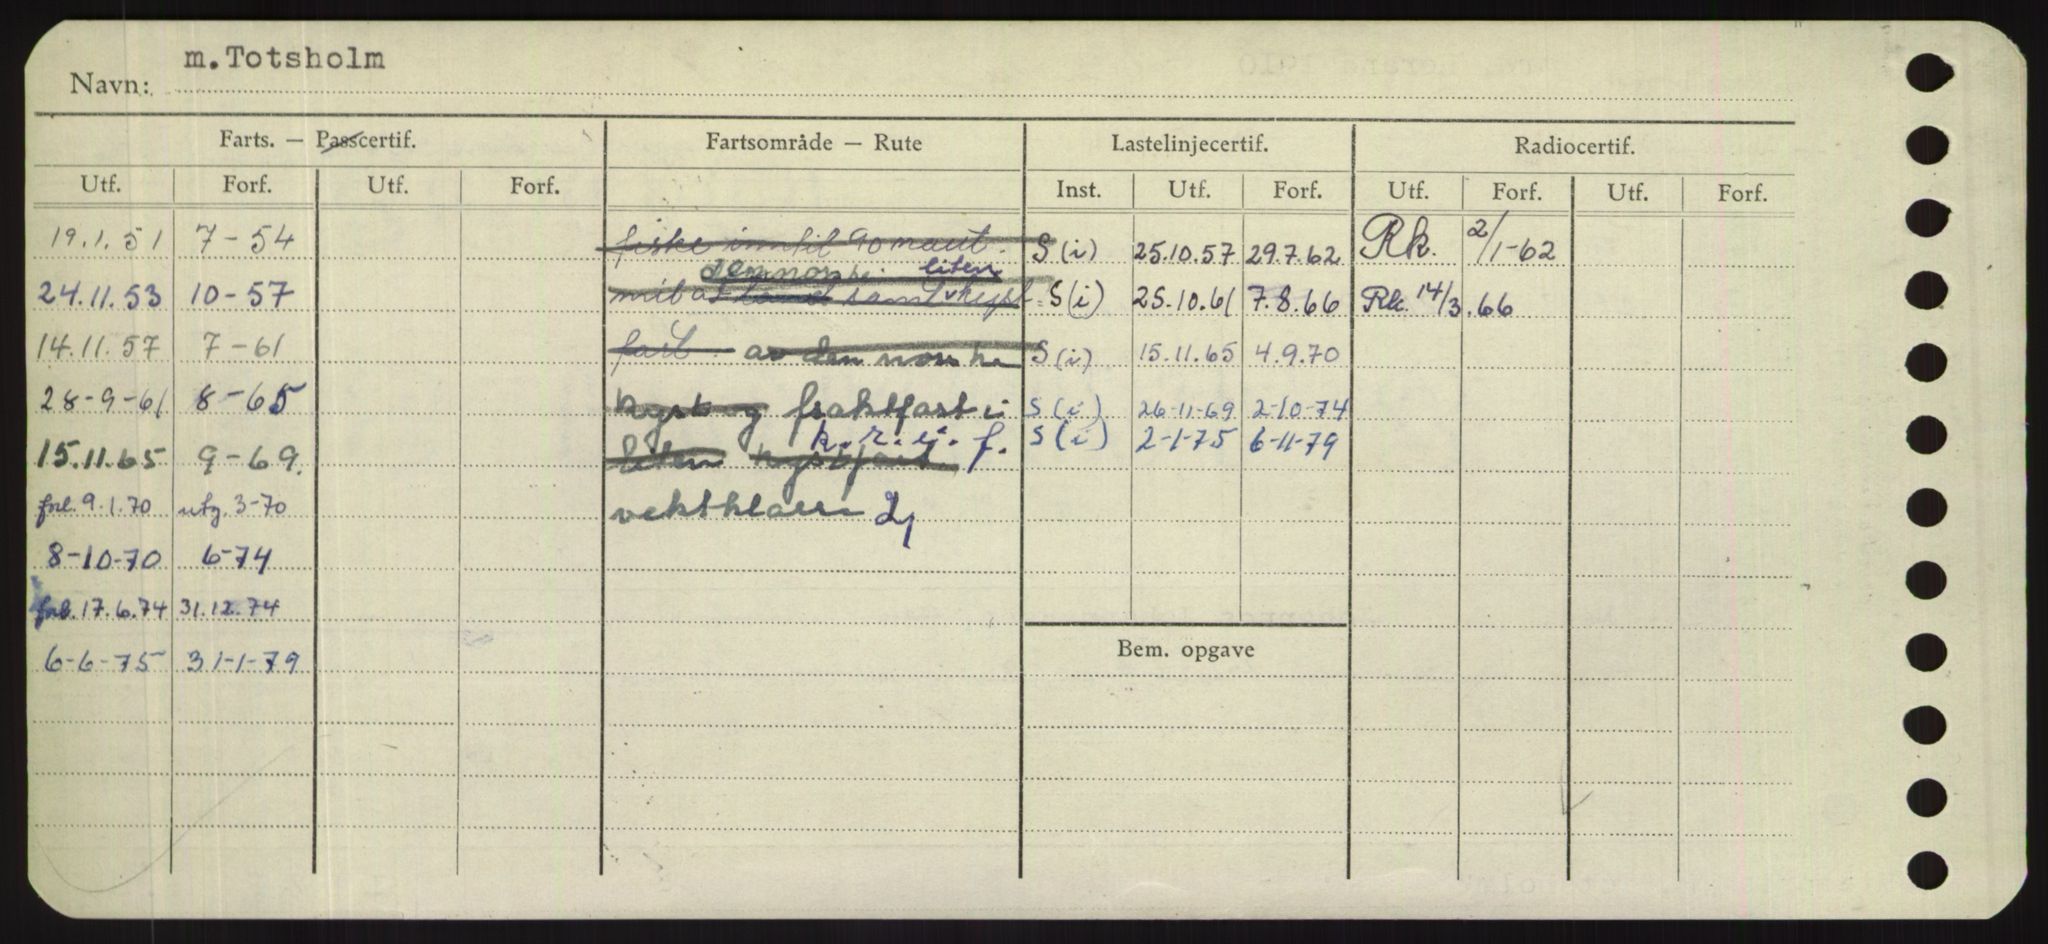 m.Totsholm
Navn:
Farts. — Passcertif. Fartsområde — Rute Lastelinjecertif. Radiocertif.
Utf. Forf. Utf. Forf. Inst. Utf. Forf. Utf. Forf. Utf. Forf.
19.1.51 7-54 fiske inntil 90 naut. S(i) 25.10.57 29.7.62 Rk. 2/1-62
den norske liten
24.11.53 10-57 mil av land samt kyst- S(i) 25.10.61 7.8.66 Rk. 14/3.66
14.11.57 7-61 fart. av den norske S(i) 15.11.65 4.9.70
28-9-61 8-65 kyst og fraktfart i S(i) 26-11-69 2-10-74
k.r.i. f. S(i) 2-1-75 6-11-79
15.11.65 9-69. liten kystfart
forl. 9.1.70 utg. 3-70 vektklasse 2
8-10-70 6-74
forl. 17.6.74 31.12.74
6-6-75 31-1-79
Bem. opgave